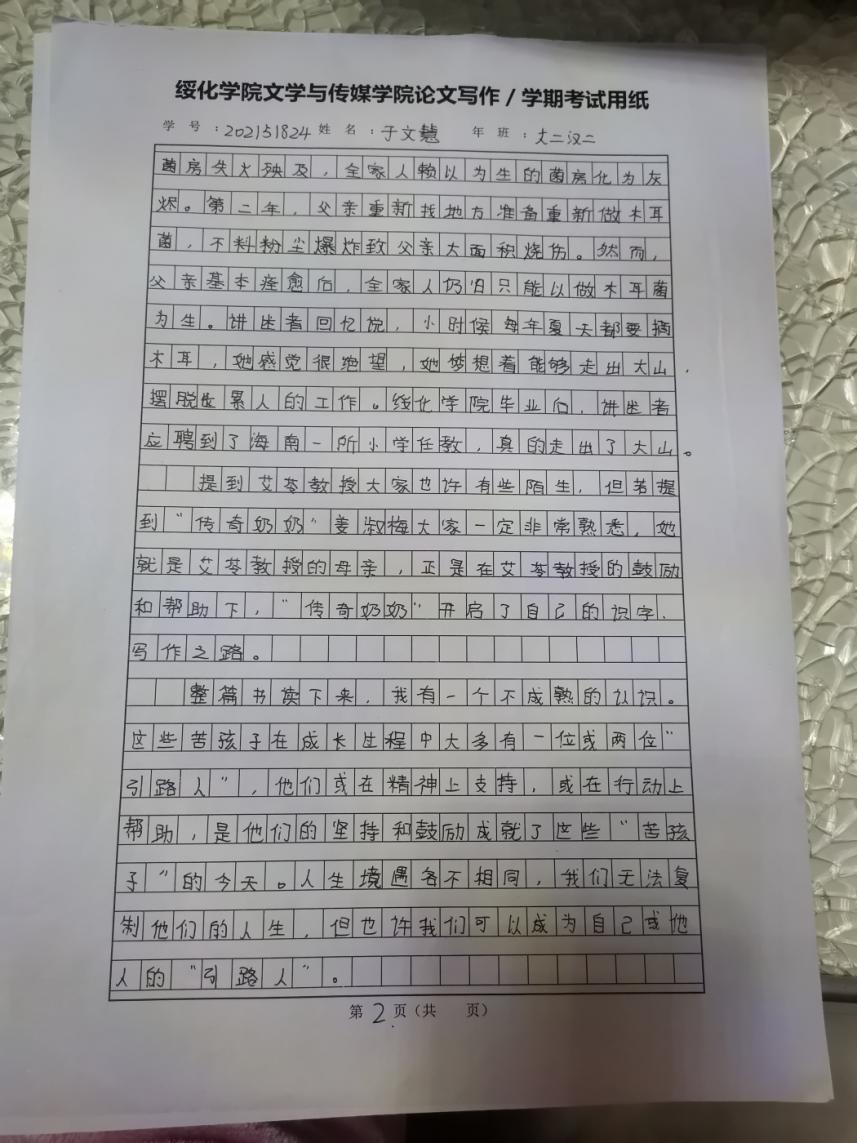 绥化学院文学与传媒学院论文写作 / 学期考试用纸
学 号 ：202151824 姓 名 ：于文慧 年 班 ：大二汉二
菌房失火殃及，全家人赖以为生的菌房化为灰
烬。第二年，父亲重新找地方准备重新做木耳
菌，不料粉尘爆炸致父亲大面积烧伤。然而，
父亲基本痊愈后，全家人仍旧只能以做木耳菌
为生。讲述者回忆说，小时候每年夏天都要摘
木耳，她感觉很绝望，她梦想着能够走出大山，
摆脱这累人的工作。绥化学院毕业后，讲述者
应聘到了海南一所小学任教，真的走出了大山。
提到艾苓教授大家也许有些陌生，但若提
到“传奇奶奶”姜淑梅大家一定非常熟悉，她
就是艾苓教授的母亲，正是在艾苓教授的鼓励
和帮助下，“传奇奶奶”开启了自己的识字、
写作之路。
整篇书读下来，我有一个不成熟的认识。
这些苦孩子在成长过程中大多有一位或两位“
引路人”，他们或在精神上支持，或在行动上
帮助，是他们的坚持和鼓励成就了这些“苦孩
子”的今天。人生境遇各不相同，我们无法复
制他们的人生，但也许我们可以成为自己或他
人的“引路人”。
第 2 页（共 页）